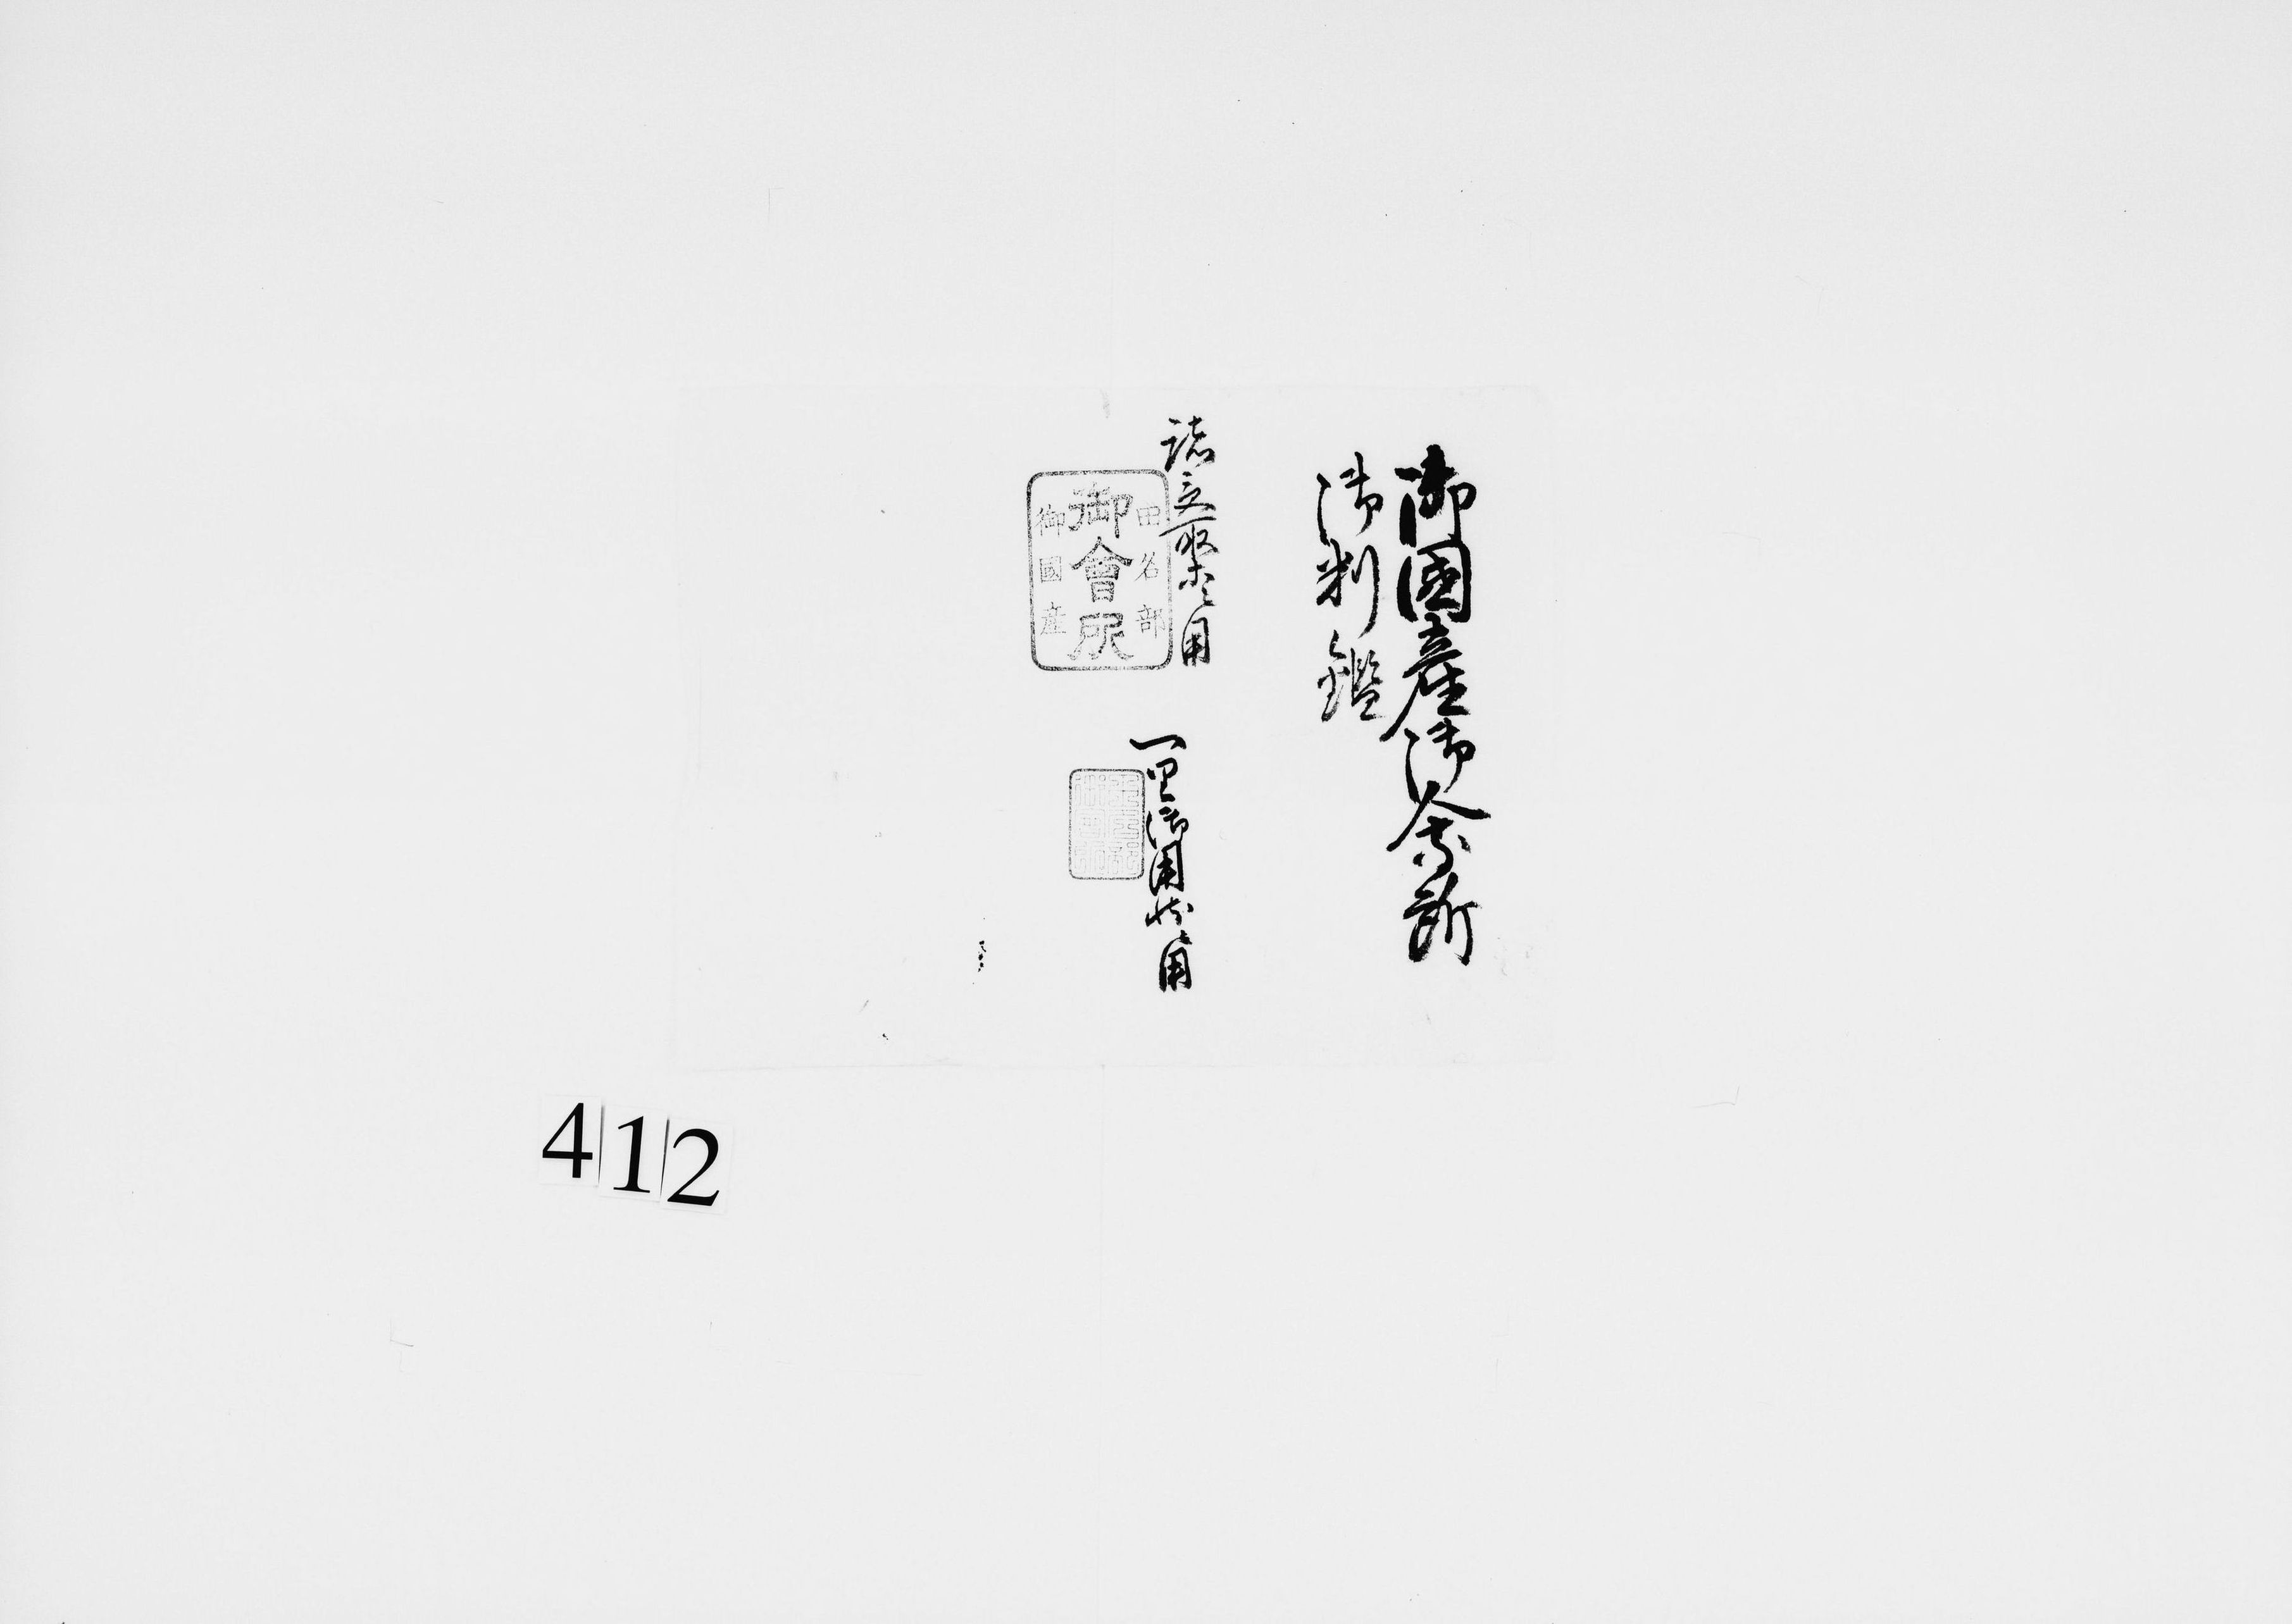 御國産御會所
御判鑑
諸立取木之用
田名部
御會所
御國産
一里御用状用
412